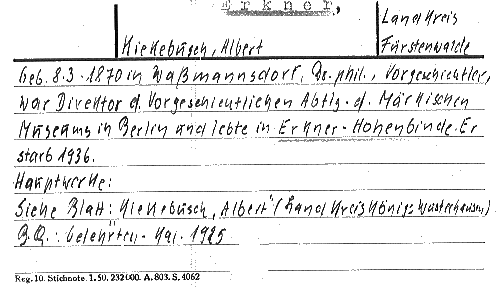 Erkner,
Landkreis
Kiekebusch, Albert
Fürstenwalde
Geb. 8.3.1870 in Waßmannsdorf, Dr. phil., Vorgeschichtler,
war Direktor d. Vorgeschichtlichen Abtlg. d. Märkischen
Museums in Berlin und lebte in Erkner-Hohenbinde. Er
starb 1936.
Hauptwerke:
Siehe Blatt: Kiekebusch, Albert" (Landkreis Königs Wusterhausen)
B.Q.: Gelehrten-Kal. 1925
Reg. 10. Stichnote. 1. 50. 232000. A. 803. S. 4062